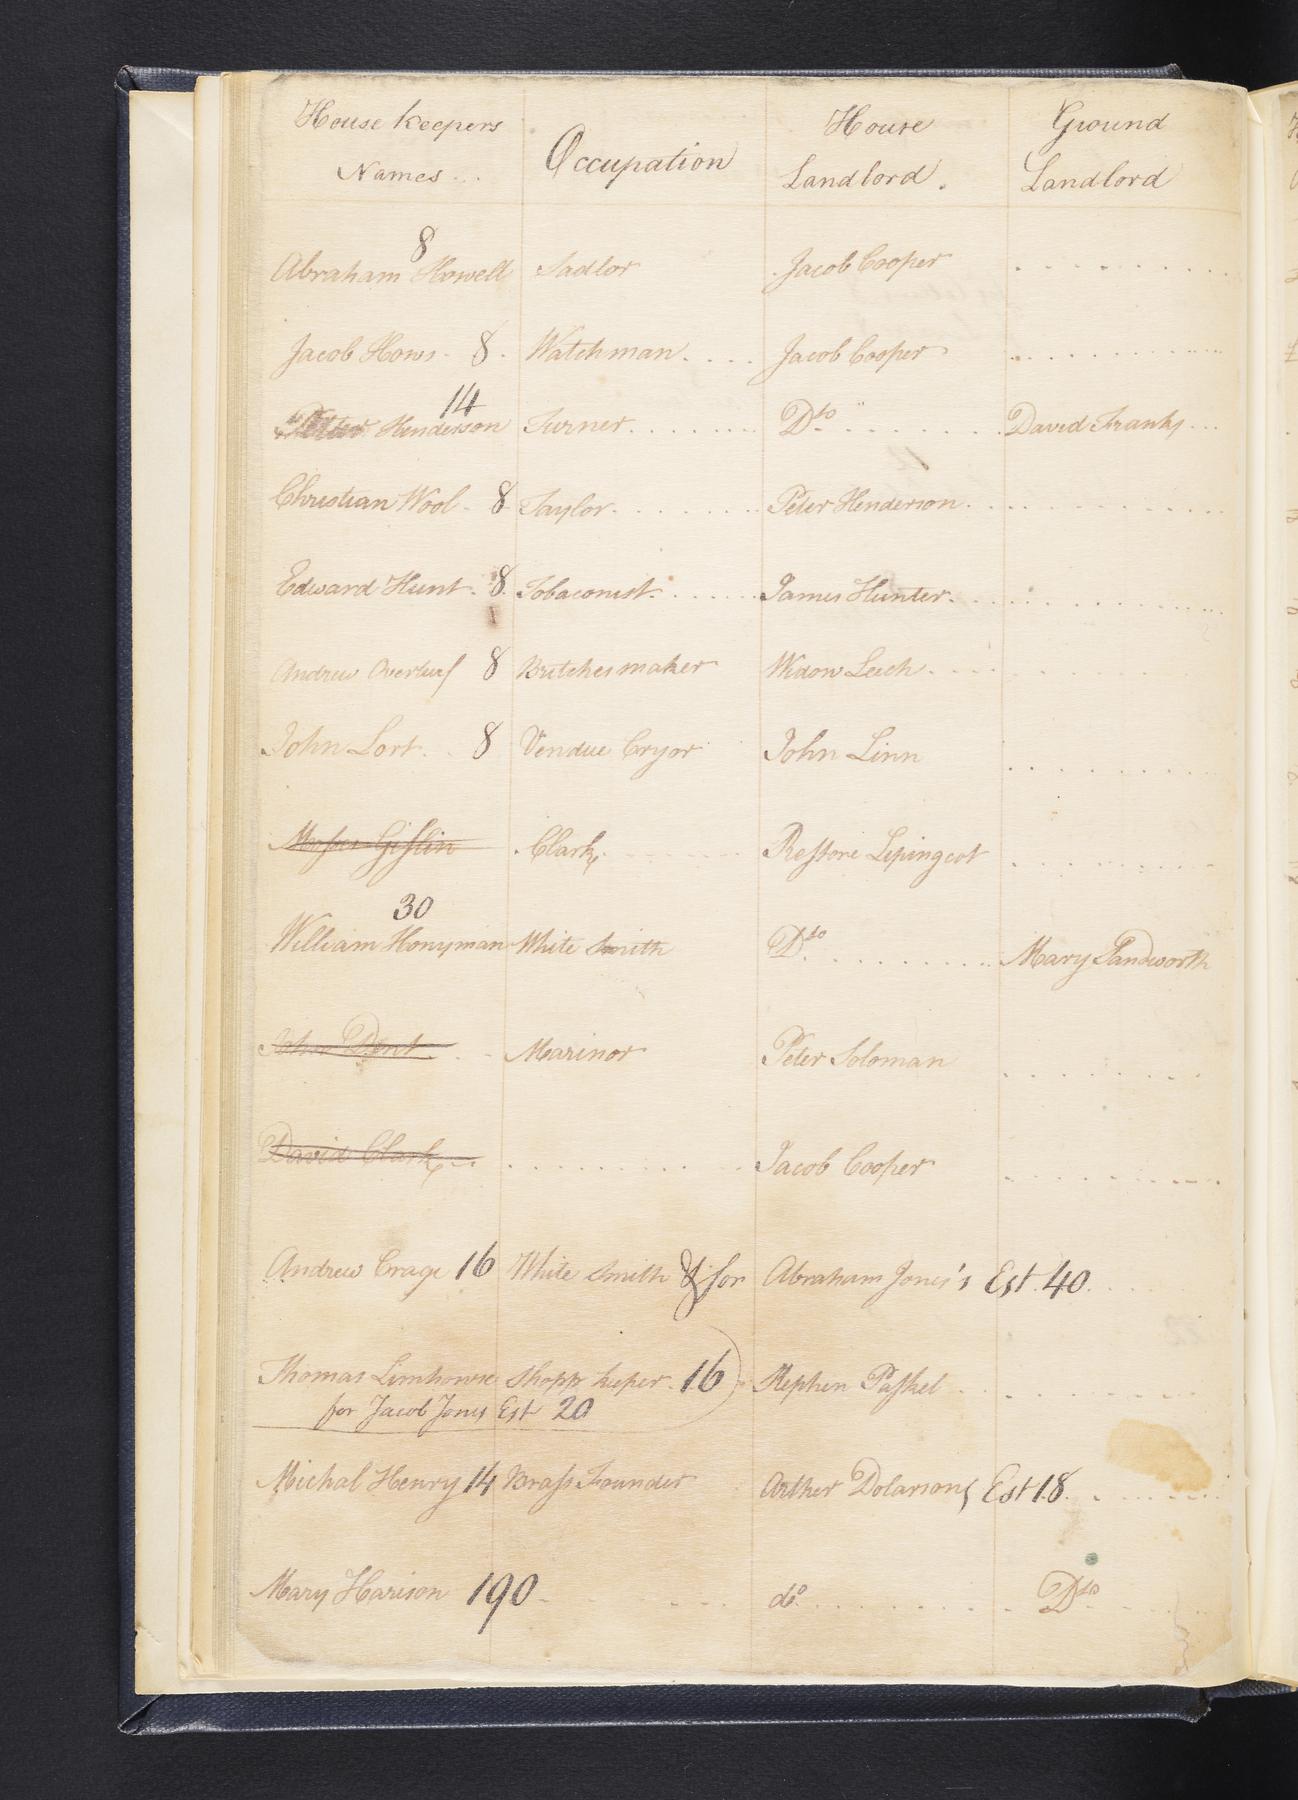 House keepers Names... Occupation House Landlord. Ground Landlord
8
Abraham Howell Sadlor Jacob Cooper
Jacob Hows. 8. Watchman Jacob Cooper
14
Henderson Turner Dto David Franks
Christian Wool. 8 Taylor Peter Henderson
Edward Hunt. 8. Tobaconist James Hunter
Andrew Overturf 8 Britches maker Widow Leech
John Lort 8 Vendue Cryor John Linn
Giſlin Clark Reſtore Lipingcot
30
William Honyman White Smith Dto Mary Sandworth
John Dent Marinor Peter Soloman
David Clark Jacob Cooper
Andrew Crage 16 White Smith & for Abraham Jones's Est. 40
Thomas Limhouse Shopp keper. 16 Stephen Paſkel
for Jacob Jones Est 20
Michal Henry 14 Braſs Founder Arther Dolarsons Est 18
Mary Harison 190 do. Dto